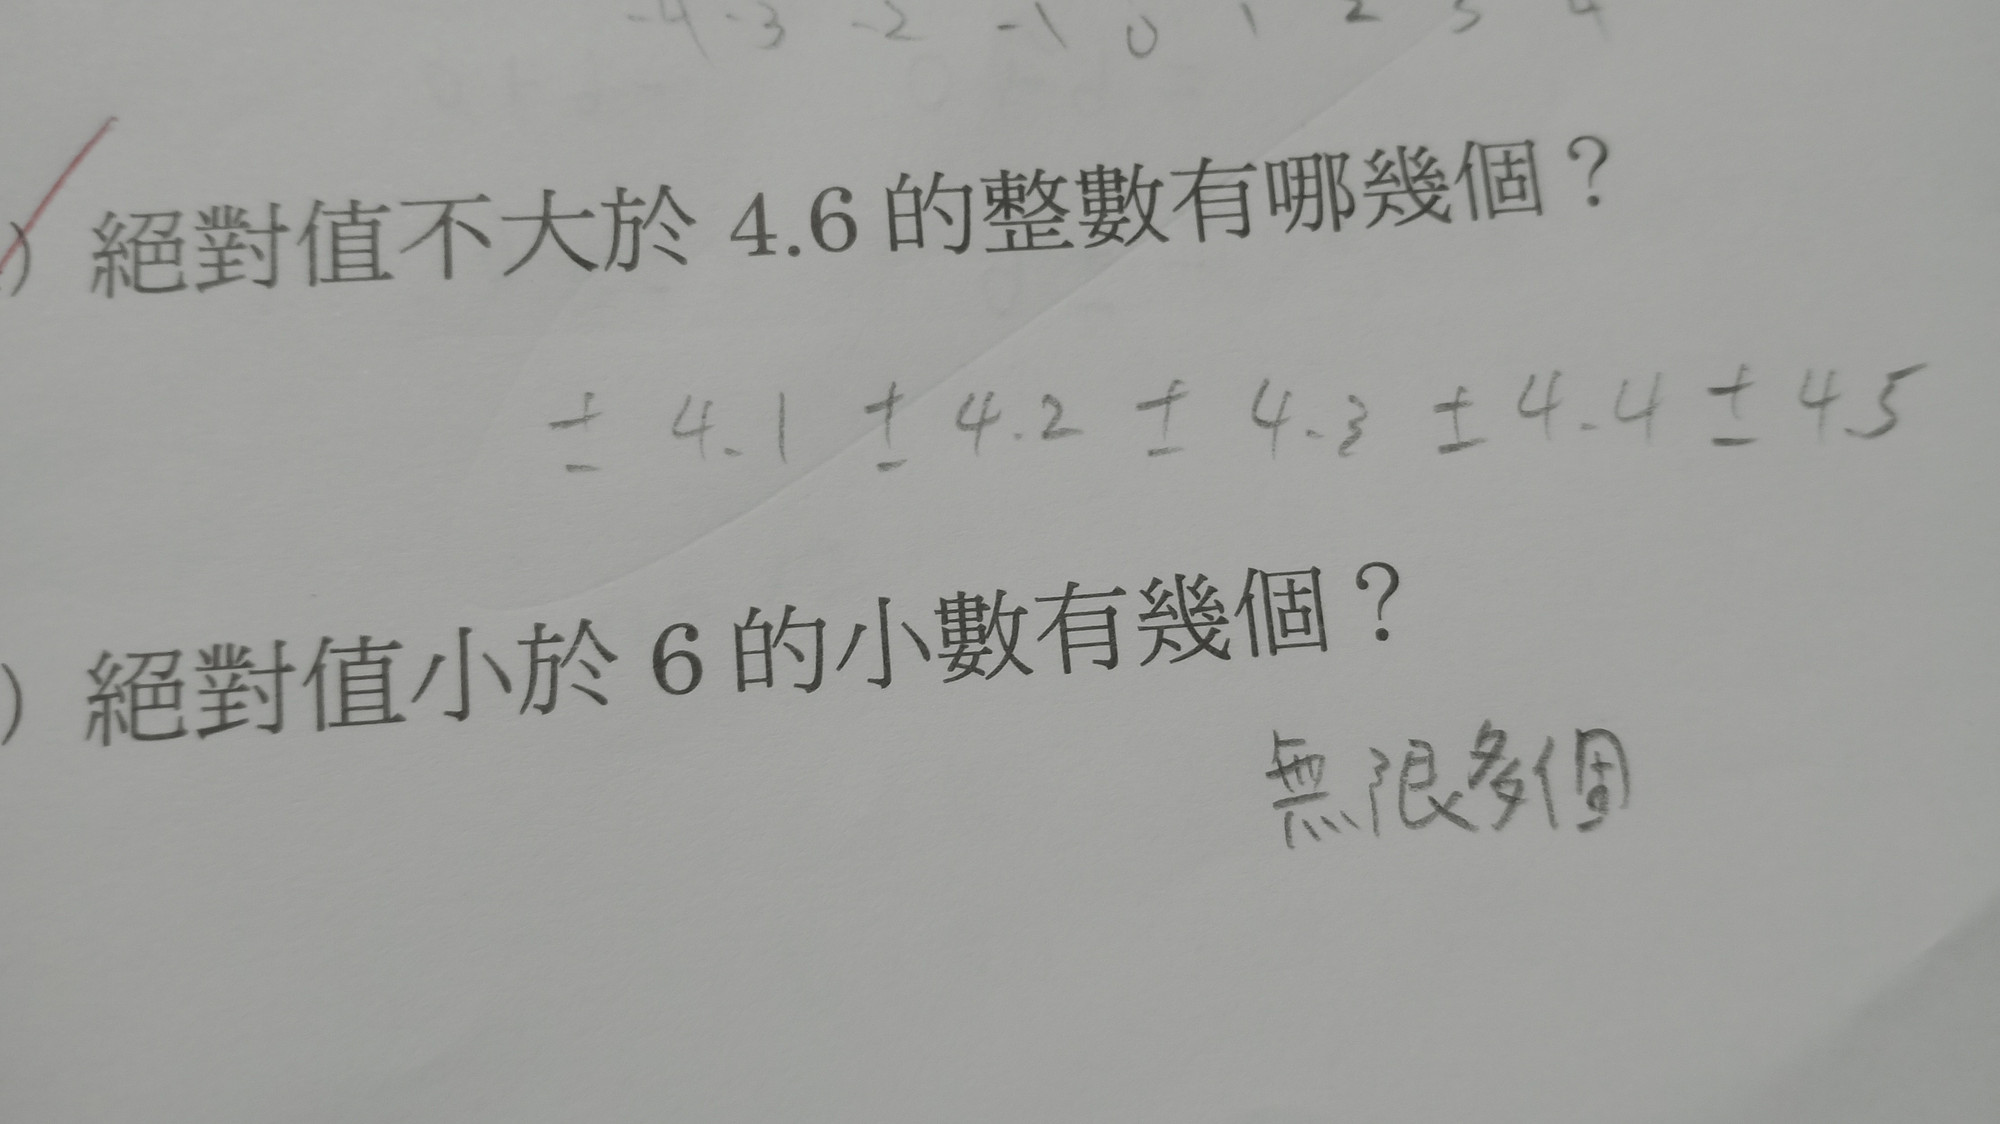 -4 -3 -2 -1 0 1 2 3 4
) 絕對值不大於 4.6 的整數有哪幾個？
± 4.1 ± 4.2 ± 4.3 ± 4.4 ± 4.5
) 絕對值小於 6 的小數有幾個？
無限多個